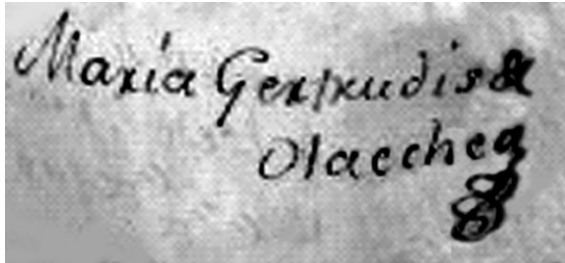 María Gertrudis de
Olaechea